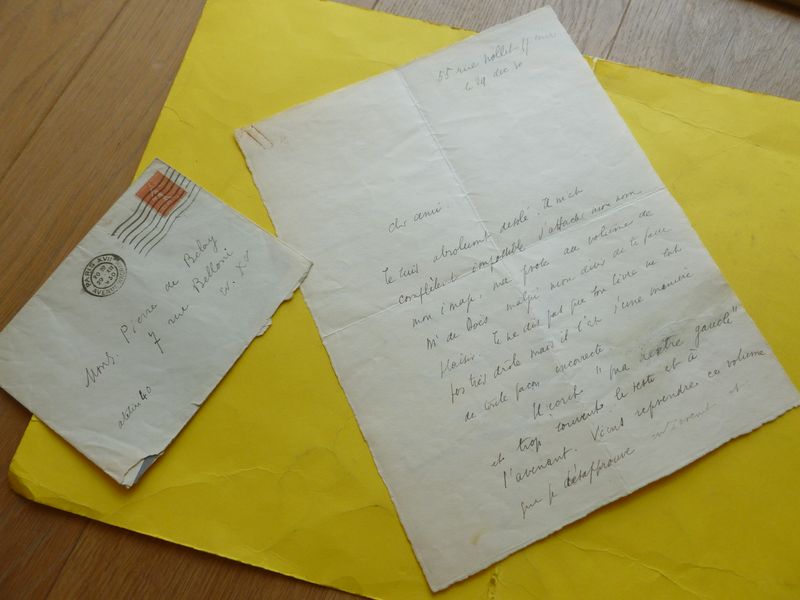 Mons. Pierre de Belay
7 rue Belloni
atelier 40
PARIS XVII
55 rue Nollet 17
le 29 dec 30
cher ami.
Je suis absolument désolé. Il m'est
complètement impossible d'attacher mon nom
mon image, ma prose au volume de
Mr de Bois malgré mon désir de te faire
plaisir. Je ne dis pas que ton livre ne soit
pas très drôle mais il l'est d'une manière
de toute façon incorrecte
Il écrit " ma dextre gauche "
et trop souvent le reste est à
l'avenant. Viens reprendre ce volume
que je désapprouve